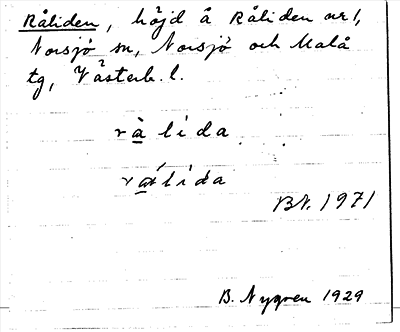 Råliden, höjd å Råliden nr 1,
Norsjö sn, Norsjö och Malå
tg, Västerb. l.
rà lìda
lìda
BN. 1971
B. Nygren 1929